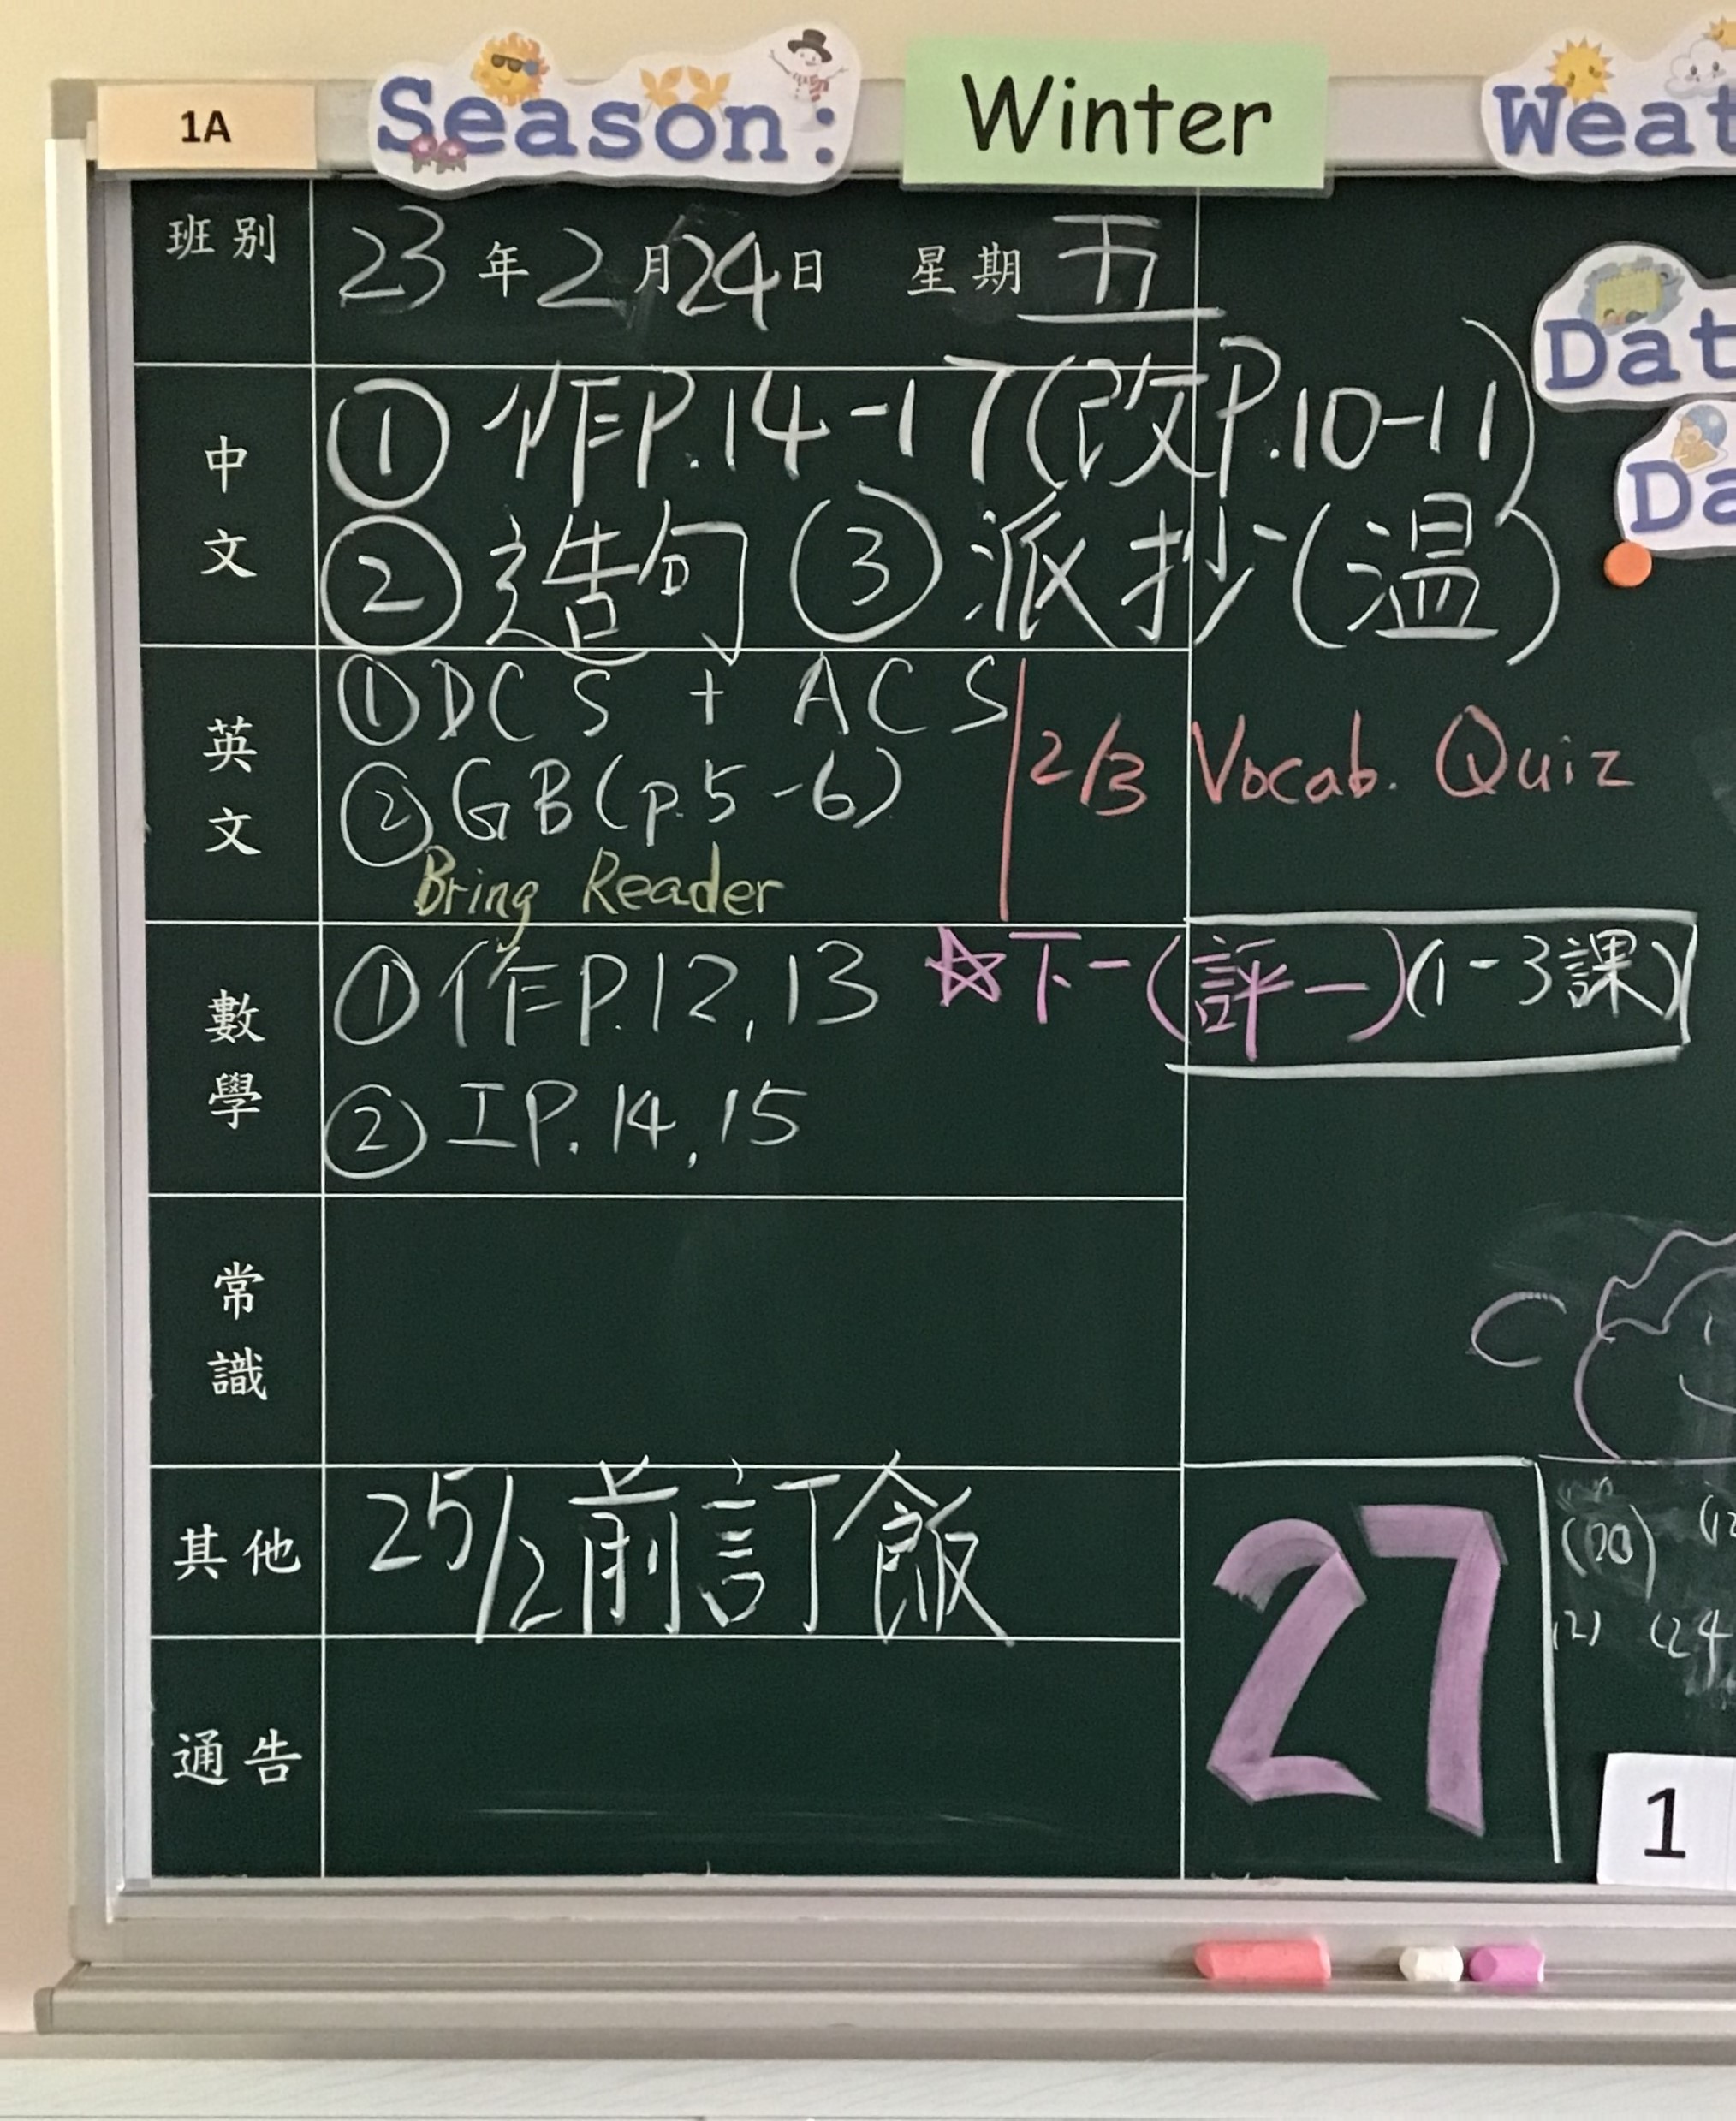 1A Season: Winter Weat
班別 23年2月24日 星期五
Dat
Da
中文
① 作P.14-17(改P.10-11)
② 造句 ③ 派抄(温)
英文
① DCS + ACS
② GB(p.5-6)
Bring Reader
2/3 Vocab. Quiz
數學
① 作P.12,13 ☆下一(評一)(1-3課)
② 工P.14,15
常識
其他 25/2前訂飯
27
(20) (12
(2) (24
通告
1